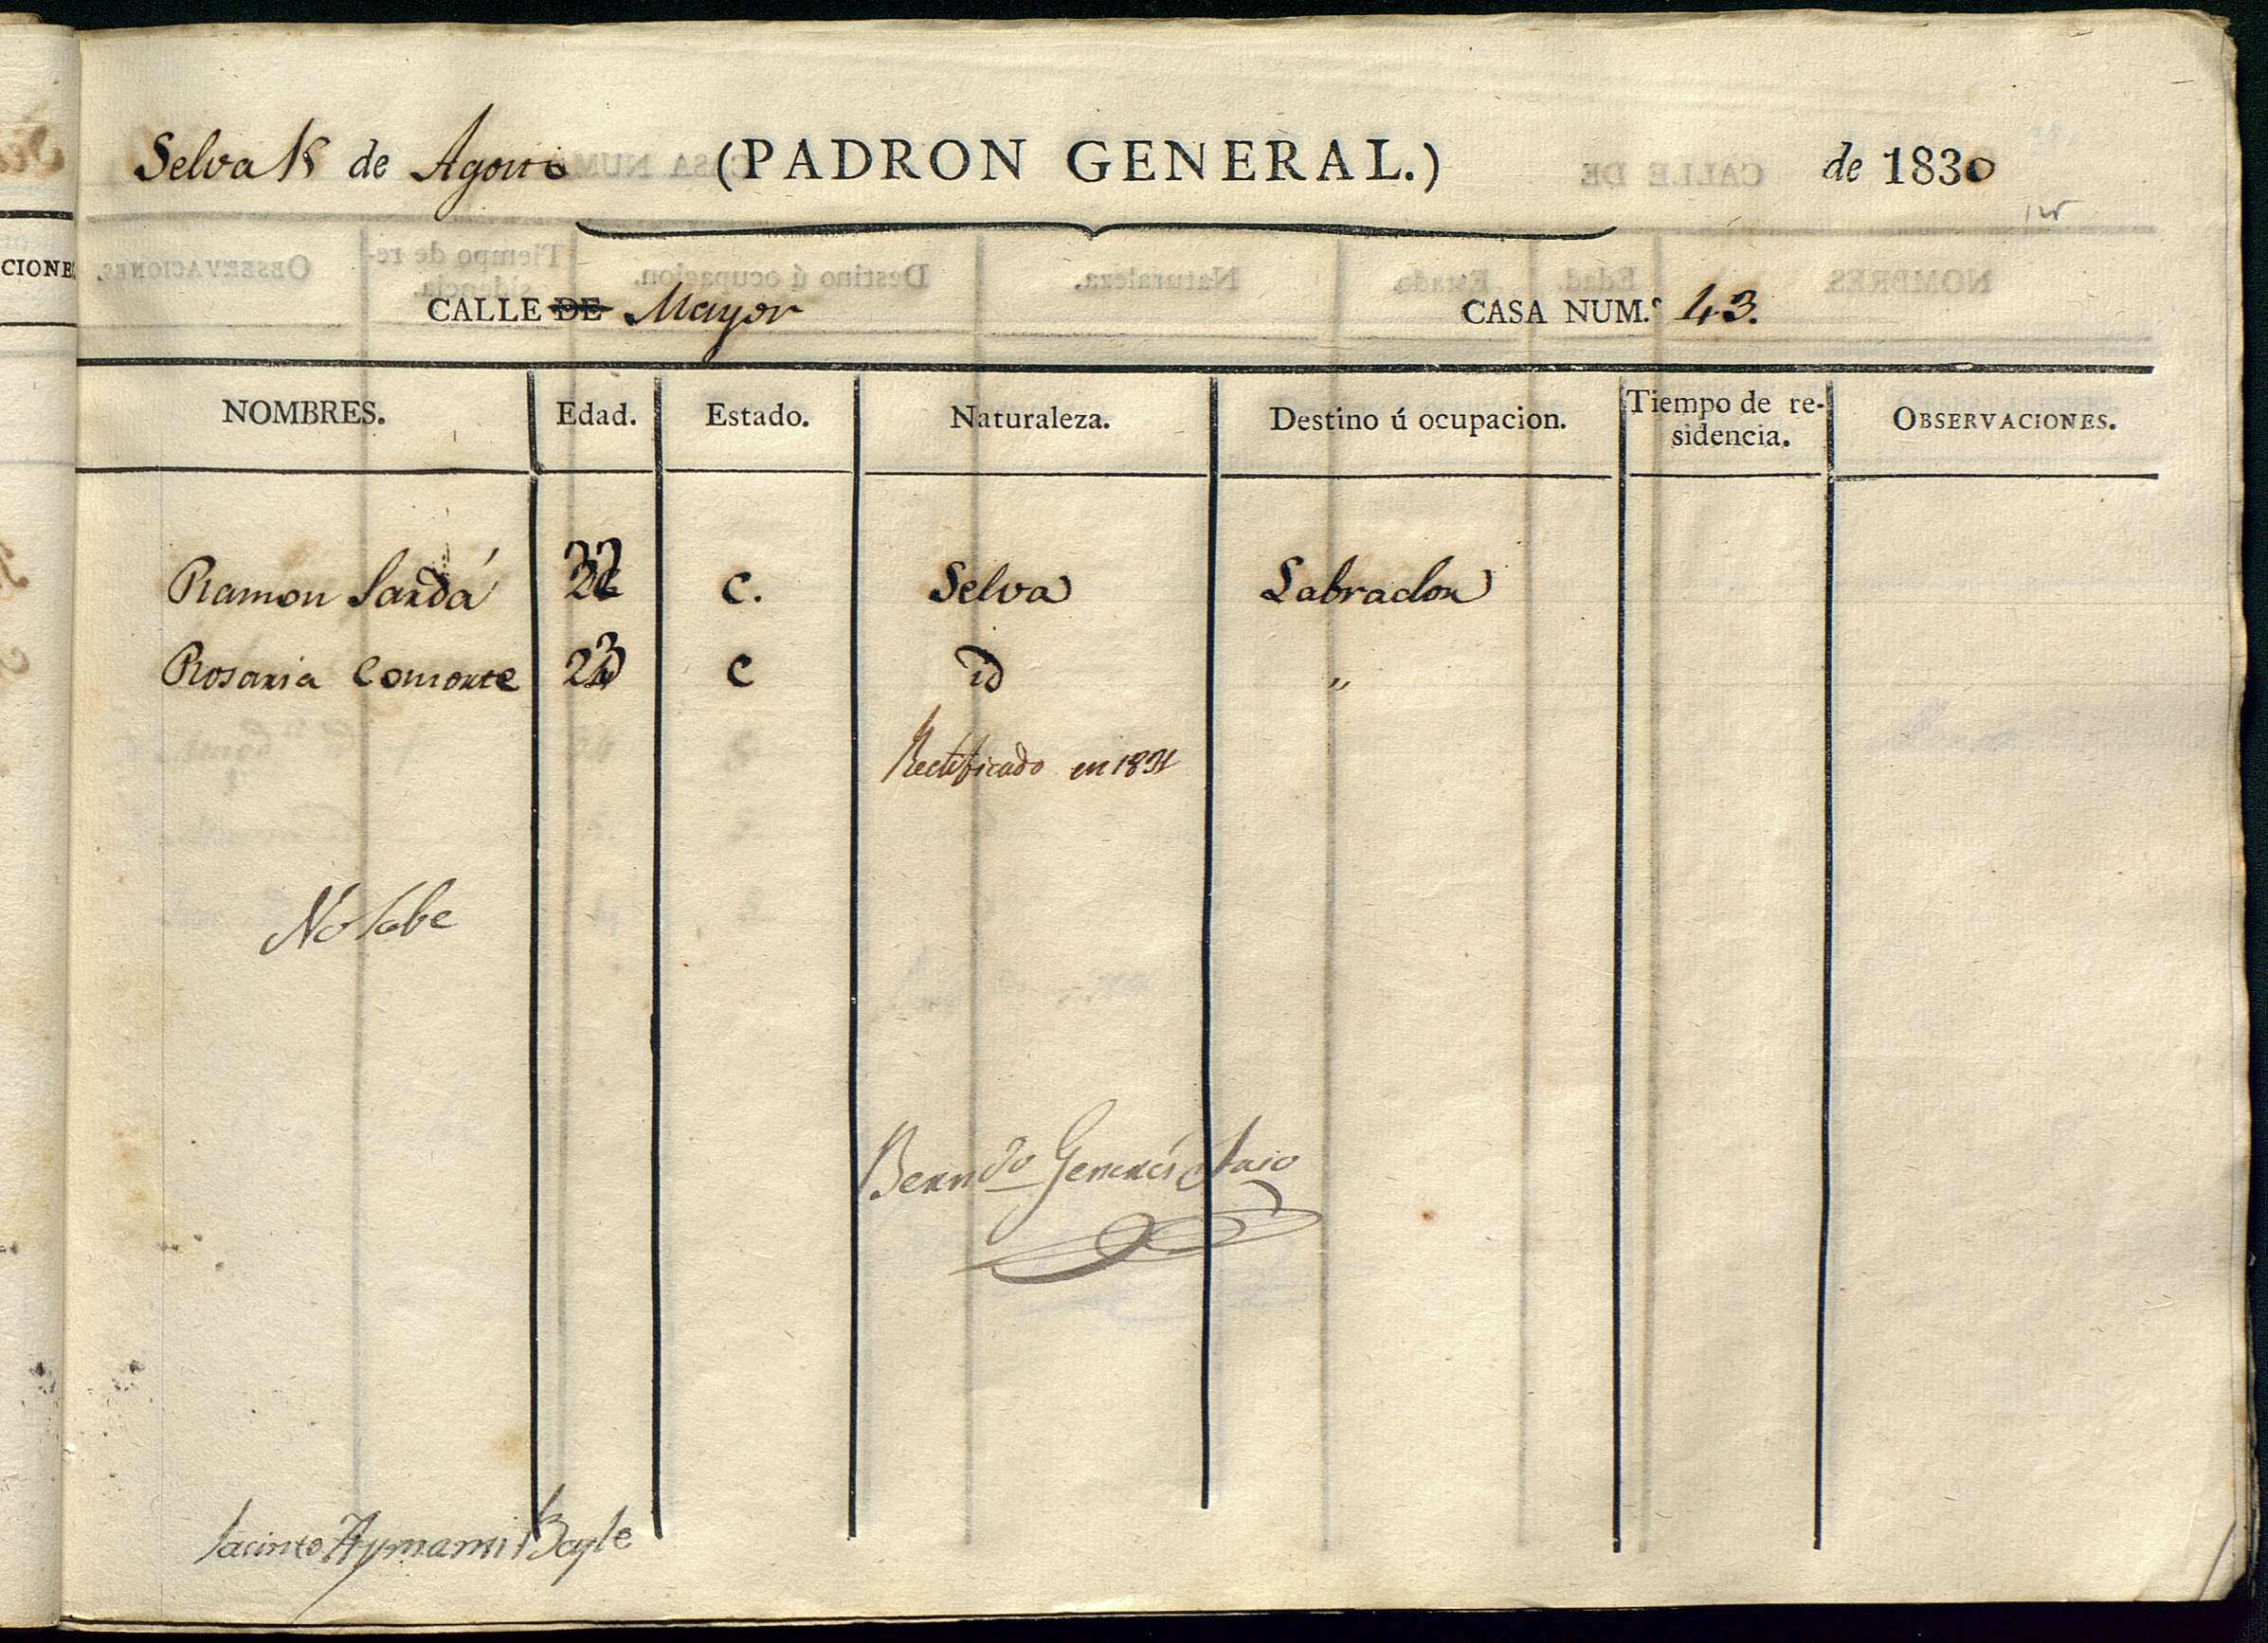 Selva 15 de Agosto (PADRON GENERAL.) de 1830
CALLE DE Mayor CASA NUM.º 43.
NOMBRES. Edad. Estado. Naturaleza. Destino ú ocupacion. Tiempo de re-sidencia. OBSERVACIONES.
Ramon Sardá C. Selva Labrador
Rosaria Consorte 23 C id "
Rectificado en 1831
No Sabe
Berndo Generés Srio
Jacinto Aymami Bayle